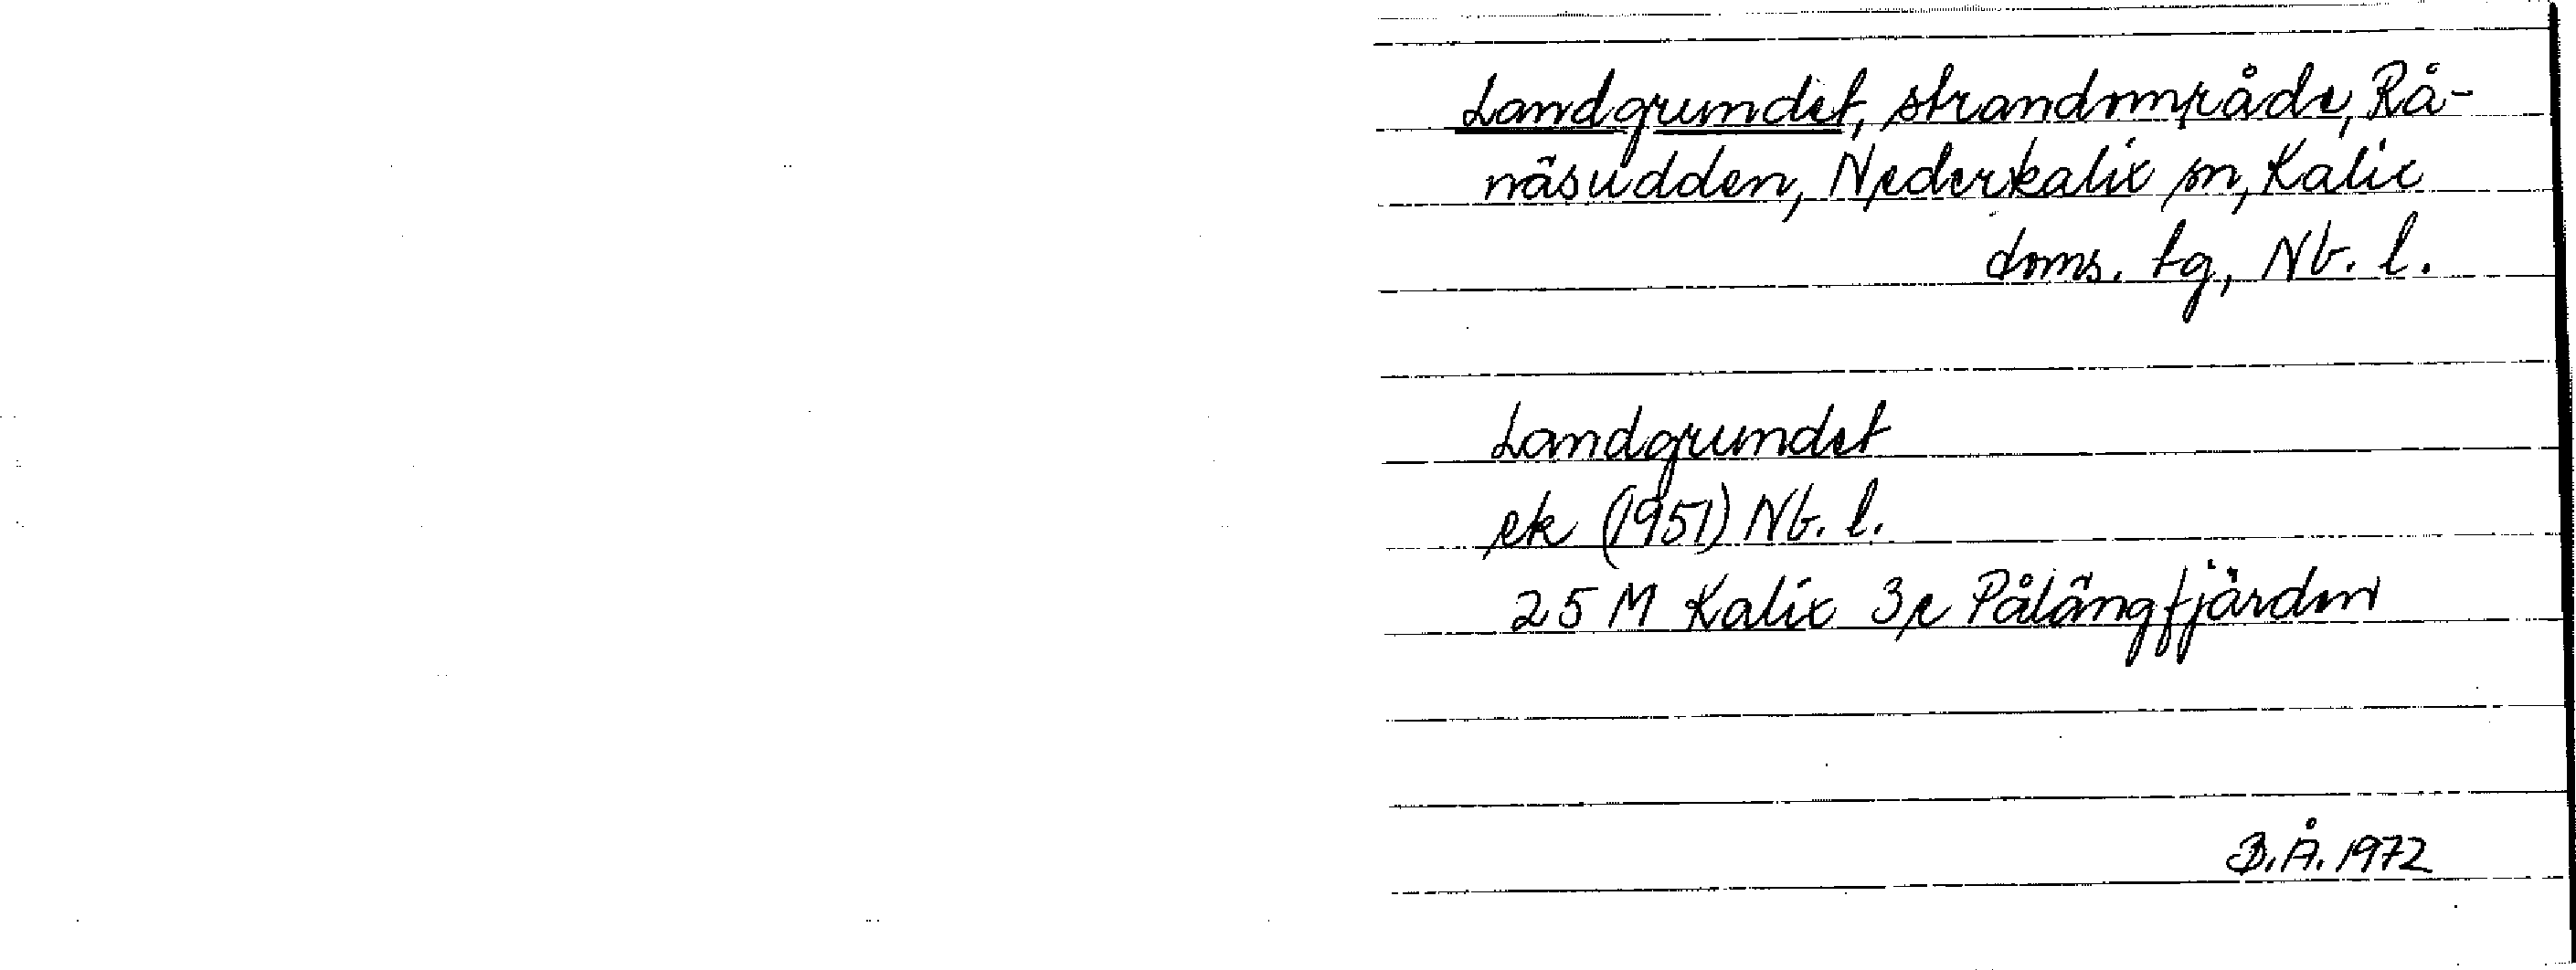 Landgrundet, strandområde, Rå-
näsudden, Nederkalix sn, Kalix
doms. tg, Nb. l.
Landgrundet
ek (1951) Nb. l.
25 M Kalix 3e Pålängfjärden
B.Å. 1972